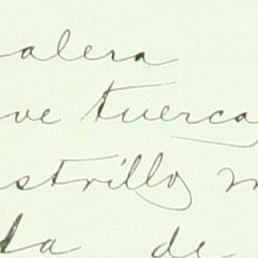 alera
ve tuerca
strillo
ta de